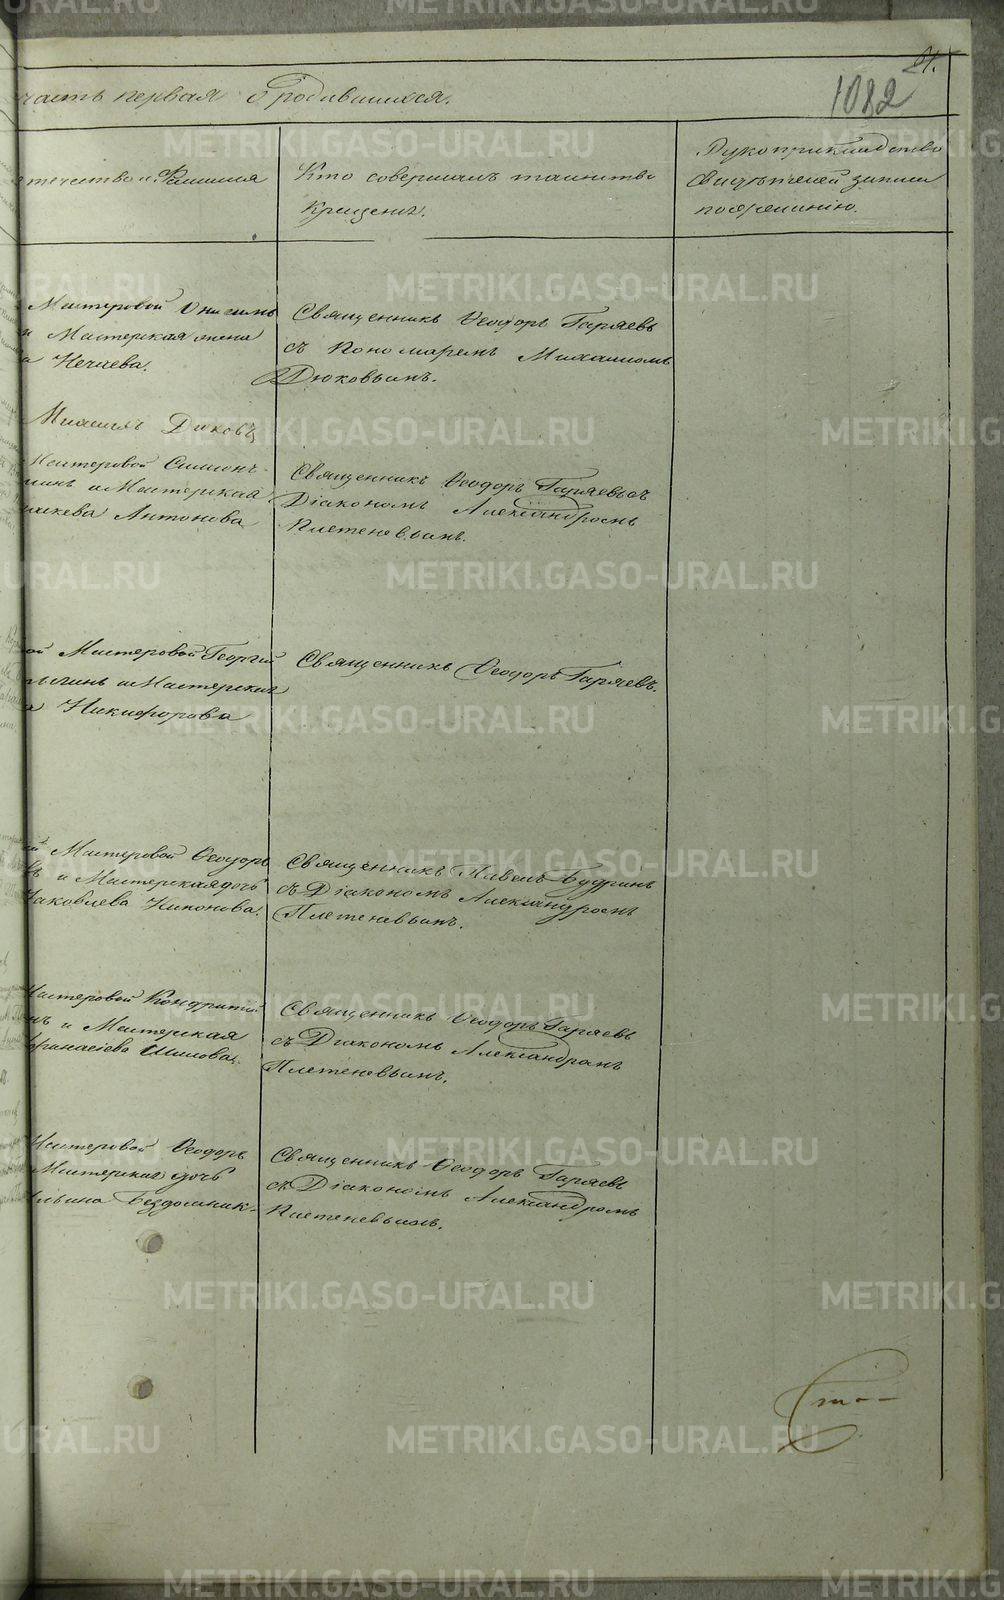 91.
1082
часть первая о родившихся.
отечество и Фамилия
Кто совершалъ таинство
крещенія.
Рукоприкладство
свидѣтелей записи
по желанію.
Мастеровой Онисимъ
и Мастерская жена
Нечаева.
Священникъ Ѳеодоръ Гаряевъ
съ Пономаремъ Михаиломъ
Дюковымъ.
Мастеровой Симеонъ
и Мастерская
Антонова
Священникъ Ѳеодоръ Гаряевъ съ
Діакономъ Александромъ
Плетеневымъ.
Мастеровой Георгій
и Мастерская
Никифорова
Священникъ Ѳеодоръ Гаряевъ.
Мастеровой Ѳеодоръ
и Мастерская дочь
Яковлева Никонова.
Священникъ Павелъ Будринъ
съ Діакономъ Александромъ
Плетеневымъ.
Мастеровой Кондратій
и Мастерская
Афанасіева Шилова.
Священникъ Ѳеодоръ Гаряевъ
съ Діакономъ Александромъ
Плетеневымъ.
Мастеровой Ѳеодоръ
Мастерская дочь
Ильина Бездомник-
Священникъ Ѳеодоръ Гаряевъ
съ Діакономъ Александромъ
Плетеневымъ.
METRIKI.GASO-URAL.RU